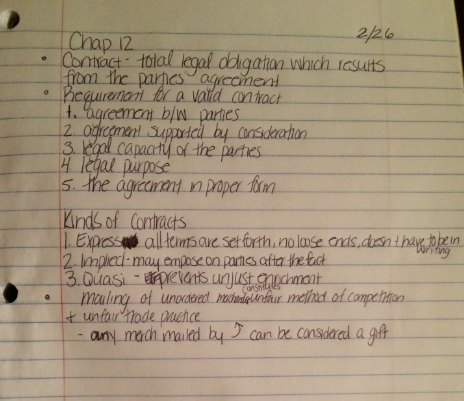 2/26
Chap 12
• Contract - total legal obligation which results
from the parties' agreement
• Requirement for a valid contract
1. agreement b/w parties
2. agreement supported by consideration
3. legal capacity of the parties
4. legal purpose
5. the agreement in proper form
Kinds of contracts
1. Express all terms are set forth, no loose ends, doesn't have to be in writing
2. Implied - may empose on parties after the fact
3. Quasi - prevents unjust enrichment
• mailing of unordered constitutes unfair method of competition
+ unfair trade practice
- any merch mailed by can be considered a gift